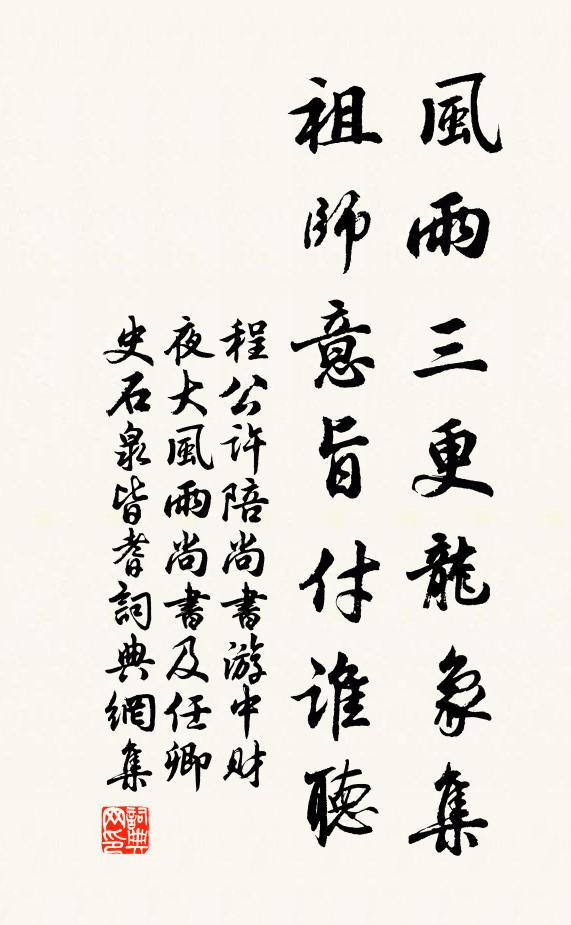 風雨三更龍象集
祖師意旨付誰聽
程公許陪尚書游中財
夜大風雨尚書及任卿
史石泉皆耆詞典網集
詞典網印